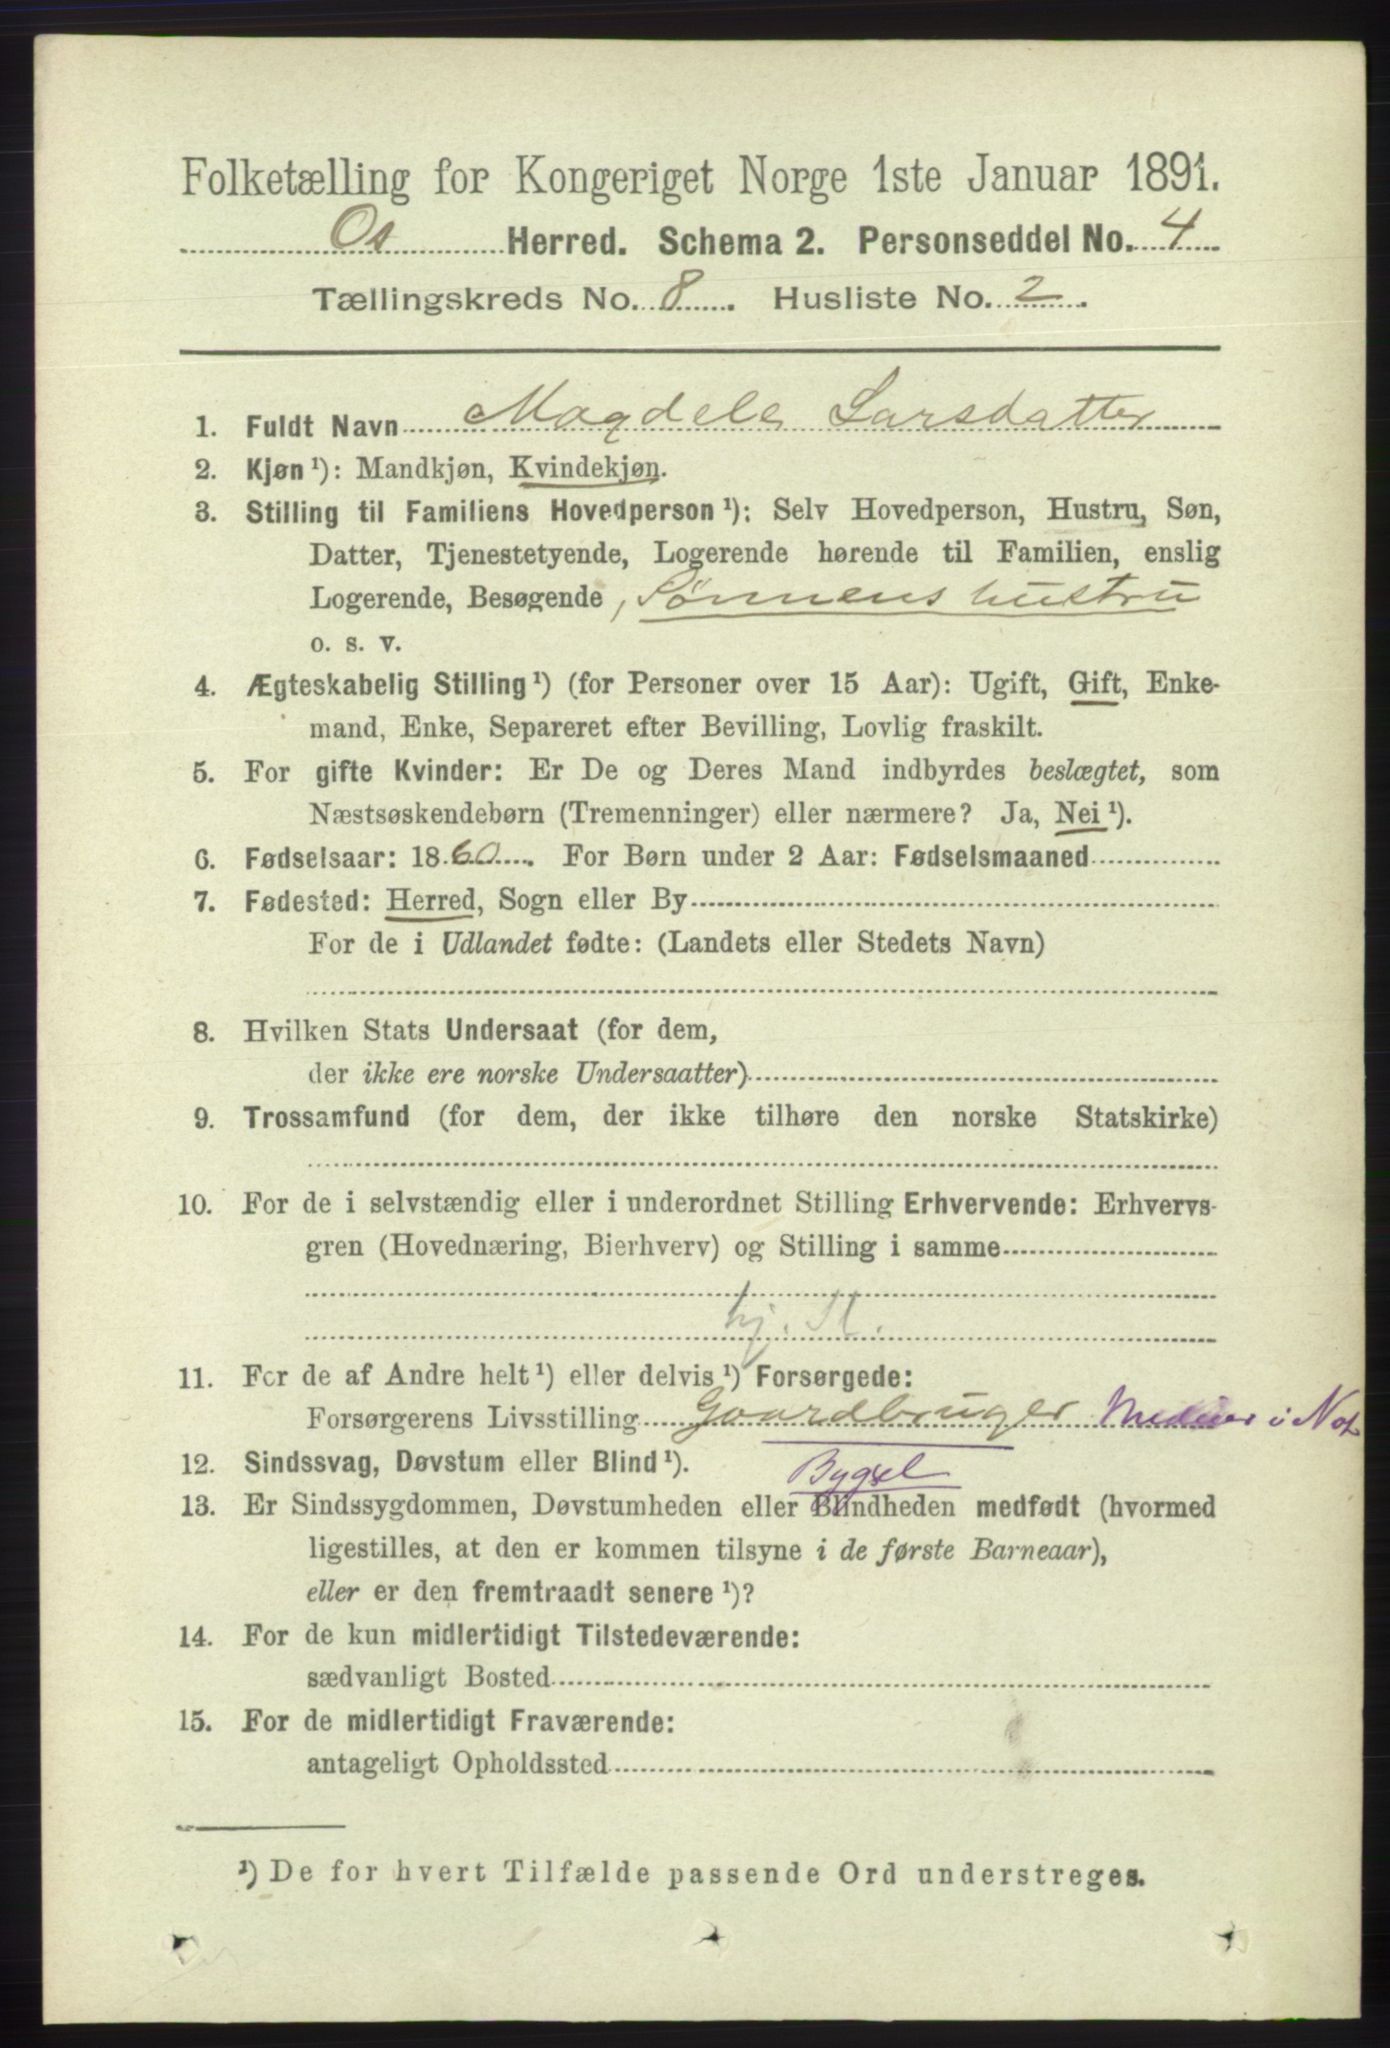 Folketælling for Kongeriget Norge 1ste Januar 1891.
Os Herred. Schema 2. Personseddel No. 4
Tællingskreds No. 8. Husliste No. 2.
1. Fuldt Navn Magdela Larsdatter
2. Kjøn ¹): Mandkjøn, Kvindekjøn.
3. Stilling til Familiens Hovedperson ¹): Selv Hovedperson, Hustru, Søn,
Datter, Tjenestetyende, Logerende hørende til Familien, enslig
Logerende, Besøgende, Sønnens hustru
o. s. v.
4. Ægteskabelig Stilling ¹) (for Personer over 15 Aar): Ugift, Gift, Enke-
mand, Enke, Separeret efter Bevilling, Lovlig fraskilt.
5. For gifte Kvinder: Er De og Deres Mand indbyrdes beslægtet, som
Næstsøskendebørn (Tremenninger) eller nærmere? Ja, Nei ¹).
6. Fødselsaar: 1860. For Børn under 2 Aar: Fødselsmaaned
7. Fødested: Herred, Sogn eller By
For de i Udlandet fødte: (Landets eller Stedets Navn)
8. Hvilken Stats Undersaat (for dem,
der ikke ere norske Undersaatter)
9. Trossamfund (for dem, der ikke tilhøre den norske Statskirke)
10. For de i selvstændig eller i underordnet Stilling Erhvervende: Erhvervs-
gren (Hovednæring, Bierhverv) og Stilling i samme
hj. St.
11. For de af Andre helt ¹) eller delvis ¹) Forsørgede:
Forsørgerens Livsstilling Gaardbruger i Not
Bygsel
12. Sindssvag, Døvstum eller Blind ¹).
13. Er Sindssygdommen, Døvstumheden eller Blindheden medfødt (hvormed
ligestilles, at den er kommen tilsyne i de første Barneaar),
eller er den fremtraadt senere ¹)?
14. For de kun midlertidigt Tilstedeværende:
sædvanligt Bosted
15. For de midlertidigt Fraværende:
antageligt Opholdssted
¹) De for hvert Tilfælde passende Ord understreges.